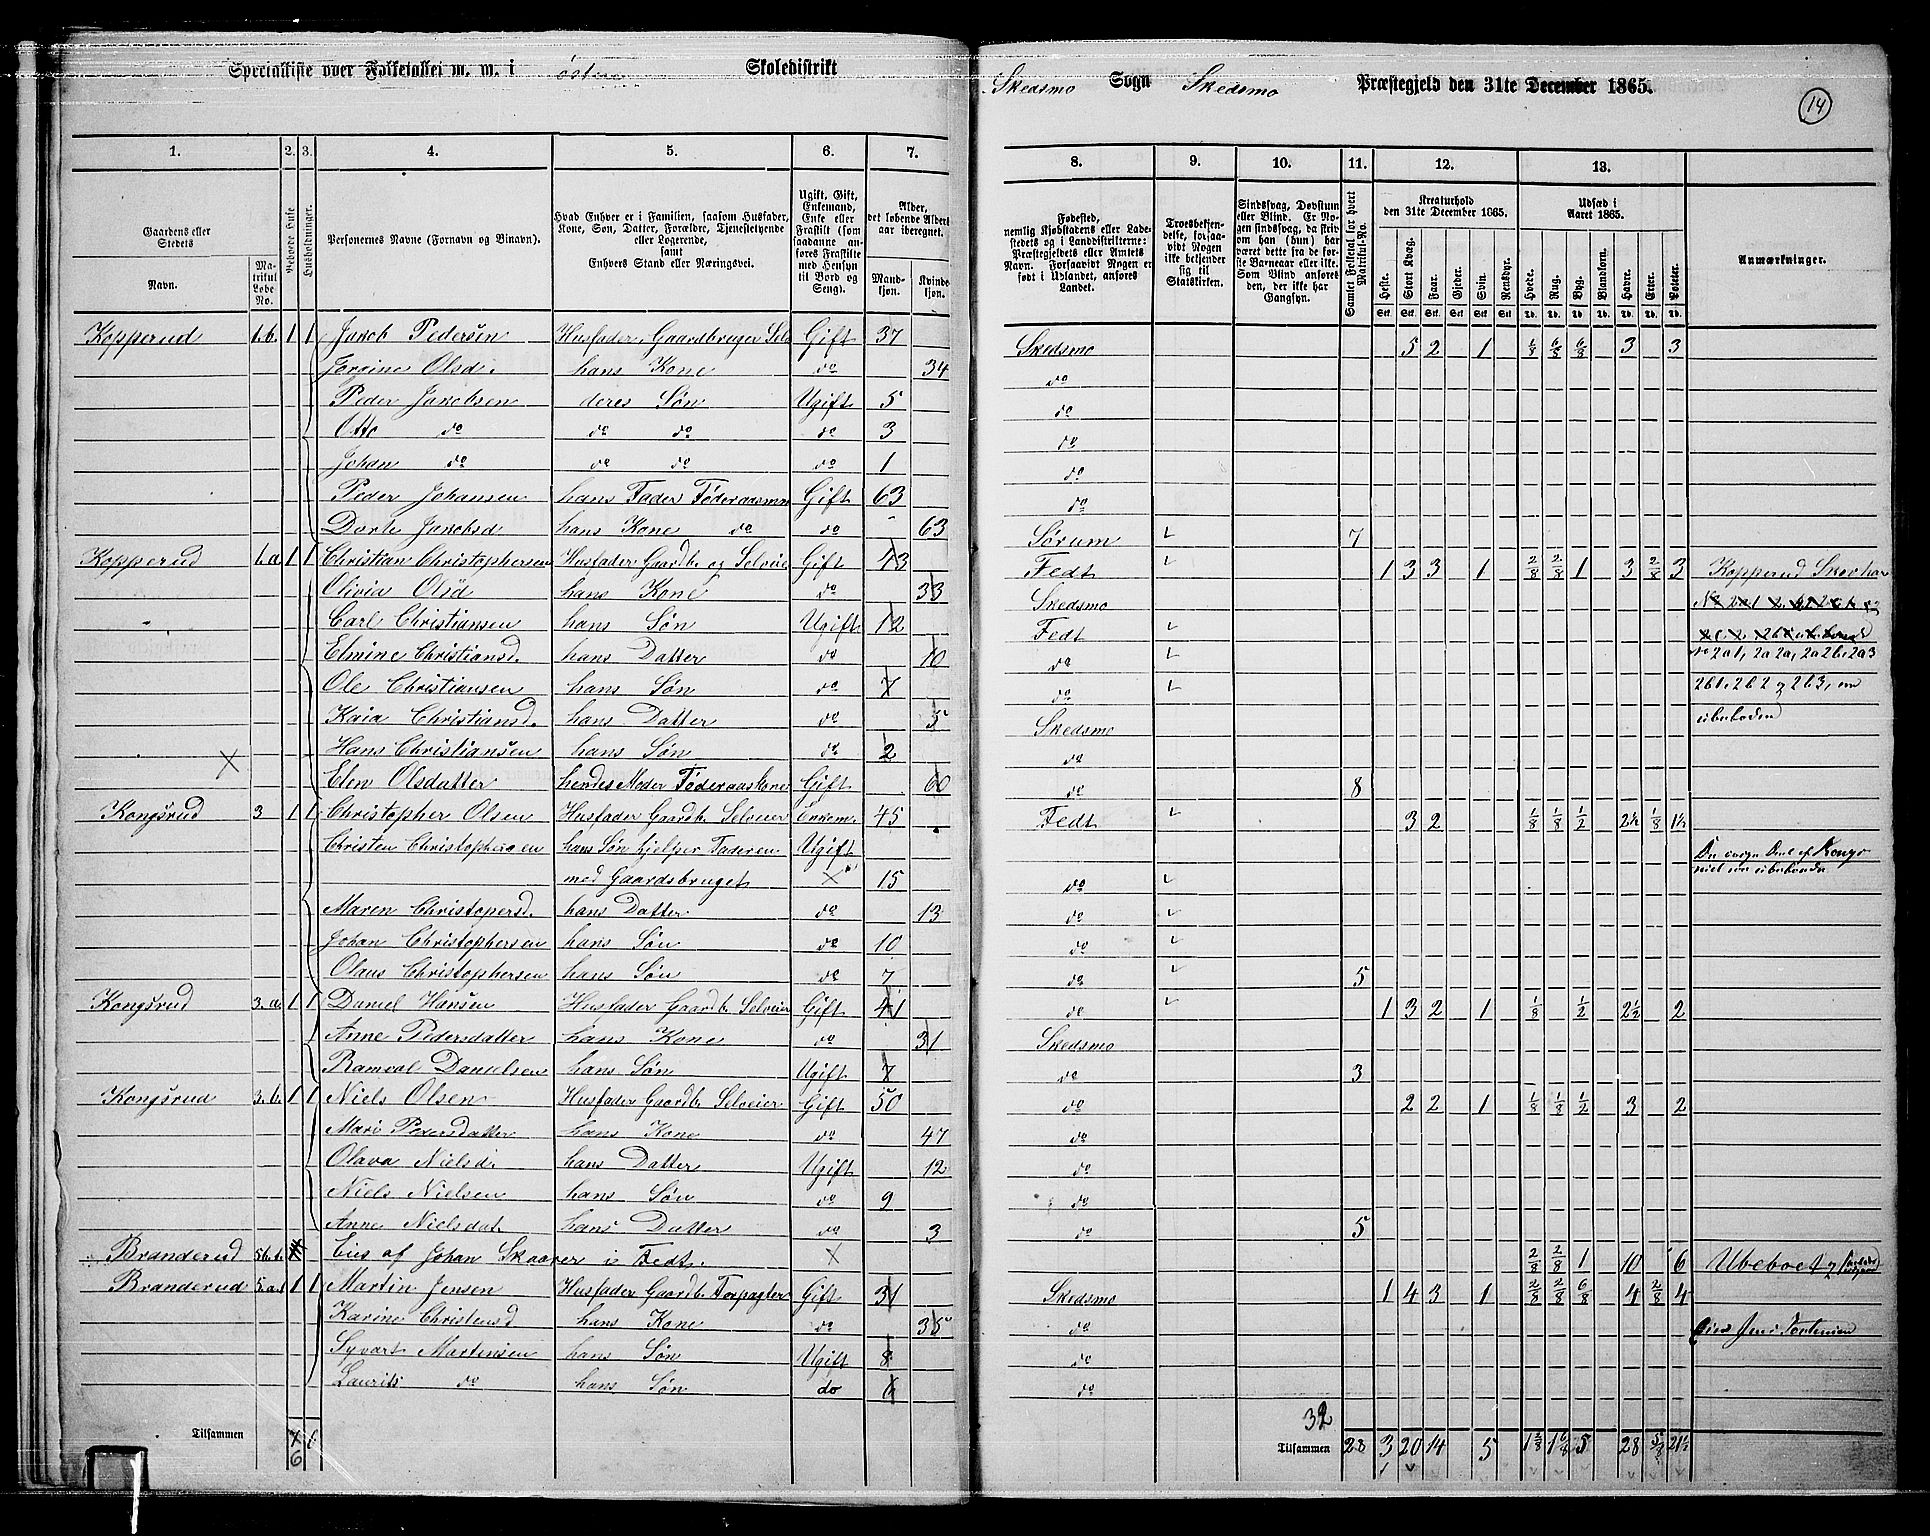 Specialliste over Folketallet m. m. i østre Skoledistrikt
Skedsmo Sogn Skedsmo Præstegjeld den 31te December 1865.
14
1. 2. 3. 4. 5. 6. 7.
8. 9. 10. 11. 12. 13.
Gaardens eller Stedets
Navn.
Matrikul Løbe No.
Beboede Huse
Husholdninger.
Personernes Navne (Fornavn og Binavn).
Hvad Enhver er i Familien, saasom Husfader, Kone, Søn, Datter, Forældre, Tjenestetyende eller Logerende, samt Enhvers Stand eller Næringsvei.
Ugift, Gift, Enkemand, Enke eller Fraskilt (som saadanne anføres Fraskilte med Hensyn til Bord og Seng).
Alder, det løbende Alders aar iberegnet.
Mandkjøn.
Kvindekjøn.
Fødested, nemlig Kjøbstadens eller Ladestedets og i Landdistrikterne: Præstegjeldets eller Amtets Navn. Forsaavidt Nogen er født i Udlandet, anføres Landet.
Troesbekjendelse, forsaavidt Nogen ikke bekjender sig til Statskirken.
Sindssvag, Døvstum eller Blind. Er Nogen sindssvag, da skrives om han (hun) har været dette fra de første Barneaar eller ikke. Som Blind anføres den, der ikke har Gangsyn.
Samlet Folketal for hvert Matrikul-No.
Kreaturhold den 31te December 1865.
Heste. Stort Kvæg. Faar. Gjeder. Svin. Rensdyr.
Stk. Stk. Stk. Stk. Stk. Stk.
Udsæd i Aaret 1865.
Hvede. Rug. Byg. Blandkorn. Havre. Erter. Poteter.
Td. Td. Td. Td. Td. Td. Td.
Anmærkninger.
Kopperud 1.b. 1 1 Jakob Pedersen Husfader, Gaardbruger Selv Gift 37 Skedsmo 5 2 1 1/8 6/8 6/8 3 3
Jorgine Olsd. hans Kone do 34 do
Peder Jakobsen deres Søn Ugift 5 do
Otto do do do do 3 do
Johan do do do do 1 do
Peder Johansen hans Fader Føderaadsman Gift 63 do
Dorte Jakobsd hans Kone do do 63 Sørum 7
Kopperud 1.a 1 1 Christian Christophersen Husfader Gaardb og Selveie Gift 43 Fedt 1 3 3 1 2/8 2/8 1 3 2/8 3 Kopperud Skov har
Olivia Olsd hans Kone do 33 Skedsmo
Carl Christiansen hans Søn Ugift 12 Fedt
Elmine Christiansd. hans Datter do 10 do No 2a1, 2a2a, 2a2b, 2a3
Ole Christiansen hans Søn do 7 do 2b1, 2b2 og 2b3, er
Kaia Christiansd. hans Datter do 5 Skedsmo ubeboden
Hans Christiansen hans Søn do 2 do
Elen Olsdatter hendes Moder Føderaadskone Gift 60 do 8
Kongsrud 3 1 1 Christopher Olsen Husfader Gaardb. Selveier Enkem. 45 Fedt 3 2 1/8 1/8 1/2 2½ 1/8 1½
Christen Christophersen hans Søn hjelper Faderen Ugift
med Gaardsbruget X 15 do
Maren Christopersd. hans Datter do 13 do
Johan Christophersen hans Søn do 10 do
Olaus Christophersen hans Søn do 7 do 5
Kongsrud 3.a. 1 1 Daniel Hansen Husfader Gaardb. Selveier Gift 41 do 1 3 2 1 1/8 1/2 2½ 2
Anne Pedersdatter hans Kone do 31 Skedsmo
Ramval Danielsen hans Søn Ugift 7 do 3
Kongsrud 3.b. 1 1 Niels Olsen Husfader Gaardb. Selveier Gift 50 do 2 2 1 1/8 1/8 1/2 3 2
Mari Pedersdatter hans Kone do 47 do
Olava Nielsd. hans Datter Ugift 12 do
Niels Nielsen hans Søn do 9 do
Anne Nielsdat. hans Datter do 3 do 5
Branderud 5b.b. Eies af Johan Skaarer i Fedt. X 2/8 2/8 1 10 6 Ubeboet
Branderud 5.a. 1 1 Martin Jensen Husfader Gaardb. Forpagter Gift 31 Skedsmo 1 4 3 1 2/8 2/8 6/8 4 2/8 4
Karine Christensd hans Kone do 35 do
Syvart Martinsen hans Søn Ugift 8 do
Laurits do hans Søn do 6 do
32
Tilsammen 6
Tilsammen 28 3 20 14 5 1 2/8 1 6/8 5 28 5/8 21½